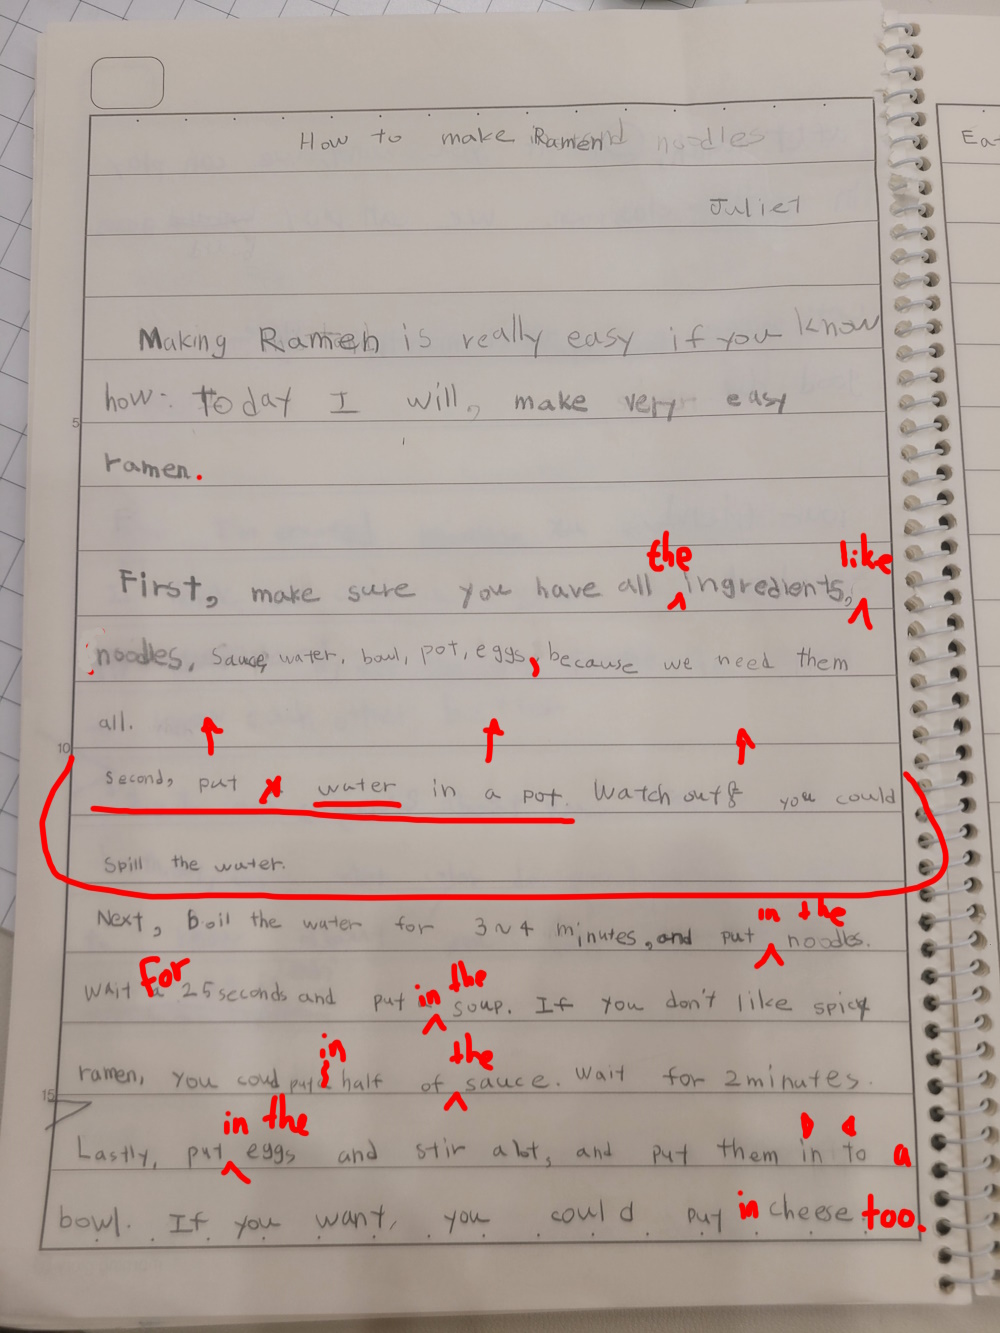 How to make Ramen noodles
Ea
Juliet
Making Ramen is really easy if you know
how. Today I will, make very easy
5
ramen.
the like
First, make sure you have all ingredients,
noodles, sauce, water, bowl, pot, eggs, because we need them
all.
10
Second, put water in a pot. Watch out you could
Spill the water.
in the
Next, boil the water for 3~4 minutes, and put noodles.
for in the
Wait 25 seconds and put soup. If you don't like spicy
in the
ramen, you could put half of sauce. Wait for 2 minutes.
15
in the
Lastly, put eggs and stir a lot, and put them in to a
bowl. If you want, you could put in cheese too.